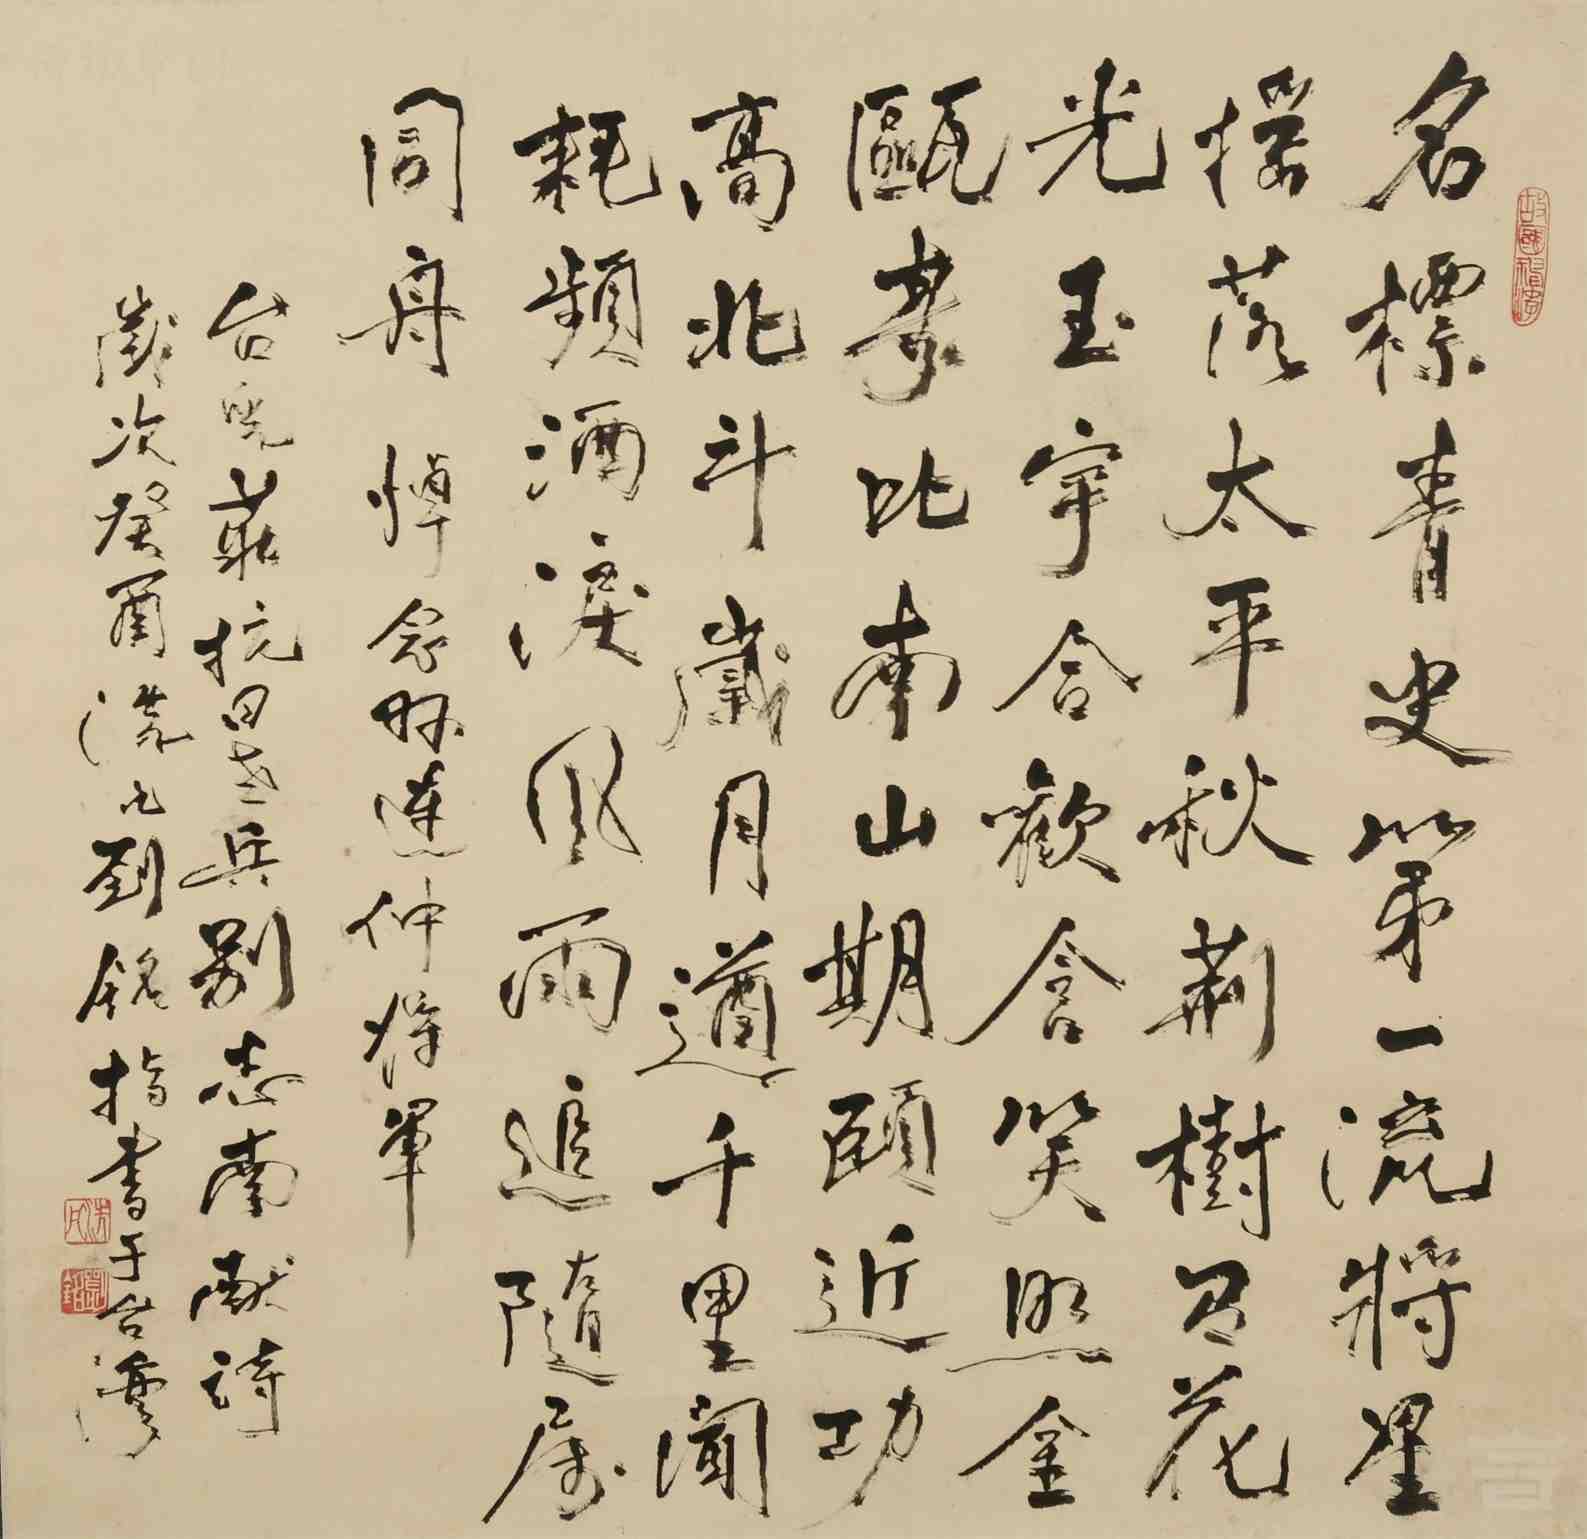 故國神游
名標青史第一流將星
搖落太平秋荊樹花
光玉宇合歡含笑照金
甌壽比南山期頤近功
高北斗歲月遒千里聞
耗頻洒淚風雨追隨屬
同舟 悼念孫連仲將軍
台兒莊抗日老兵志南獻詩
歲次癸酉劉銘指書于台灣